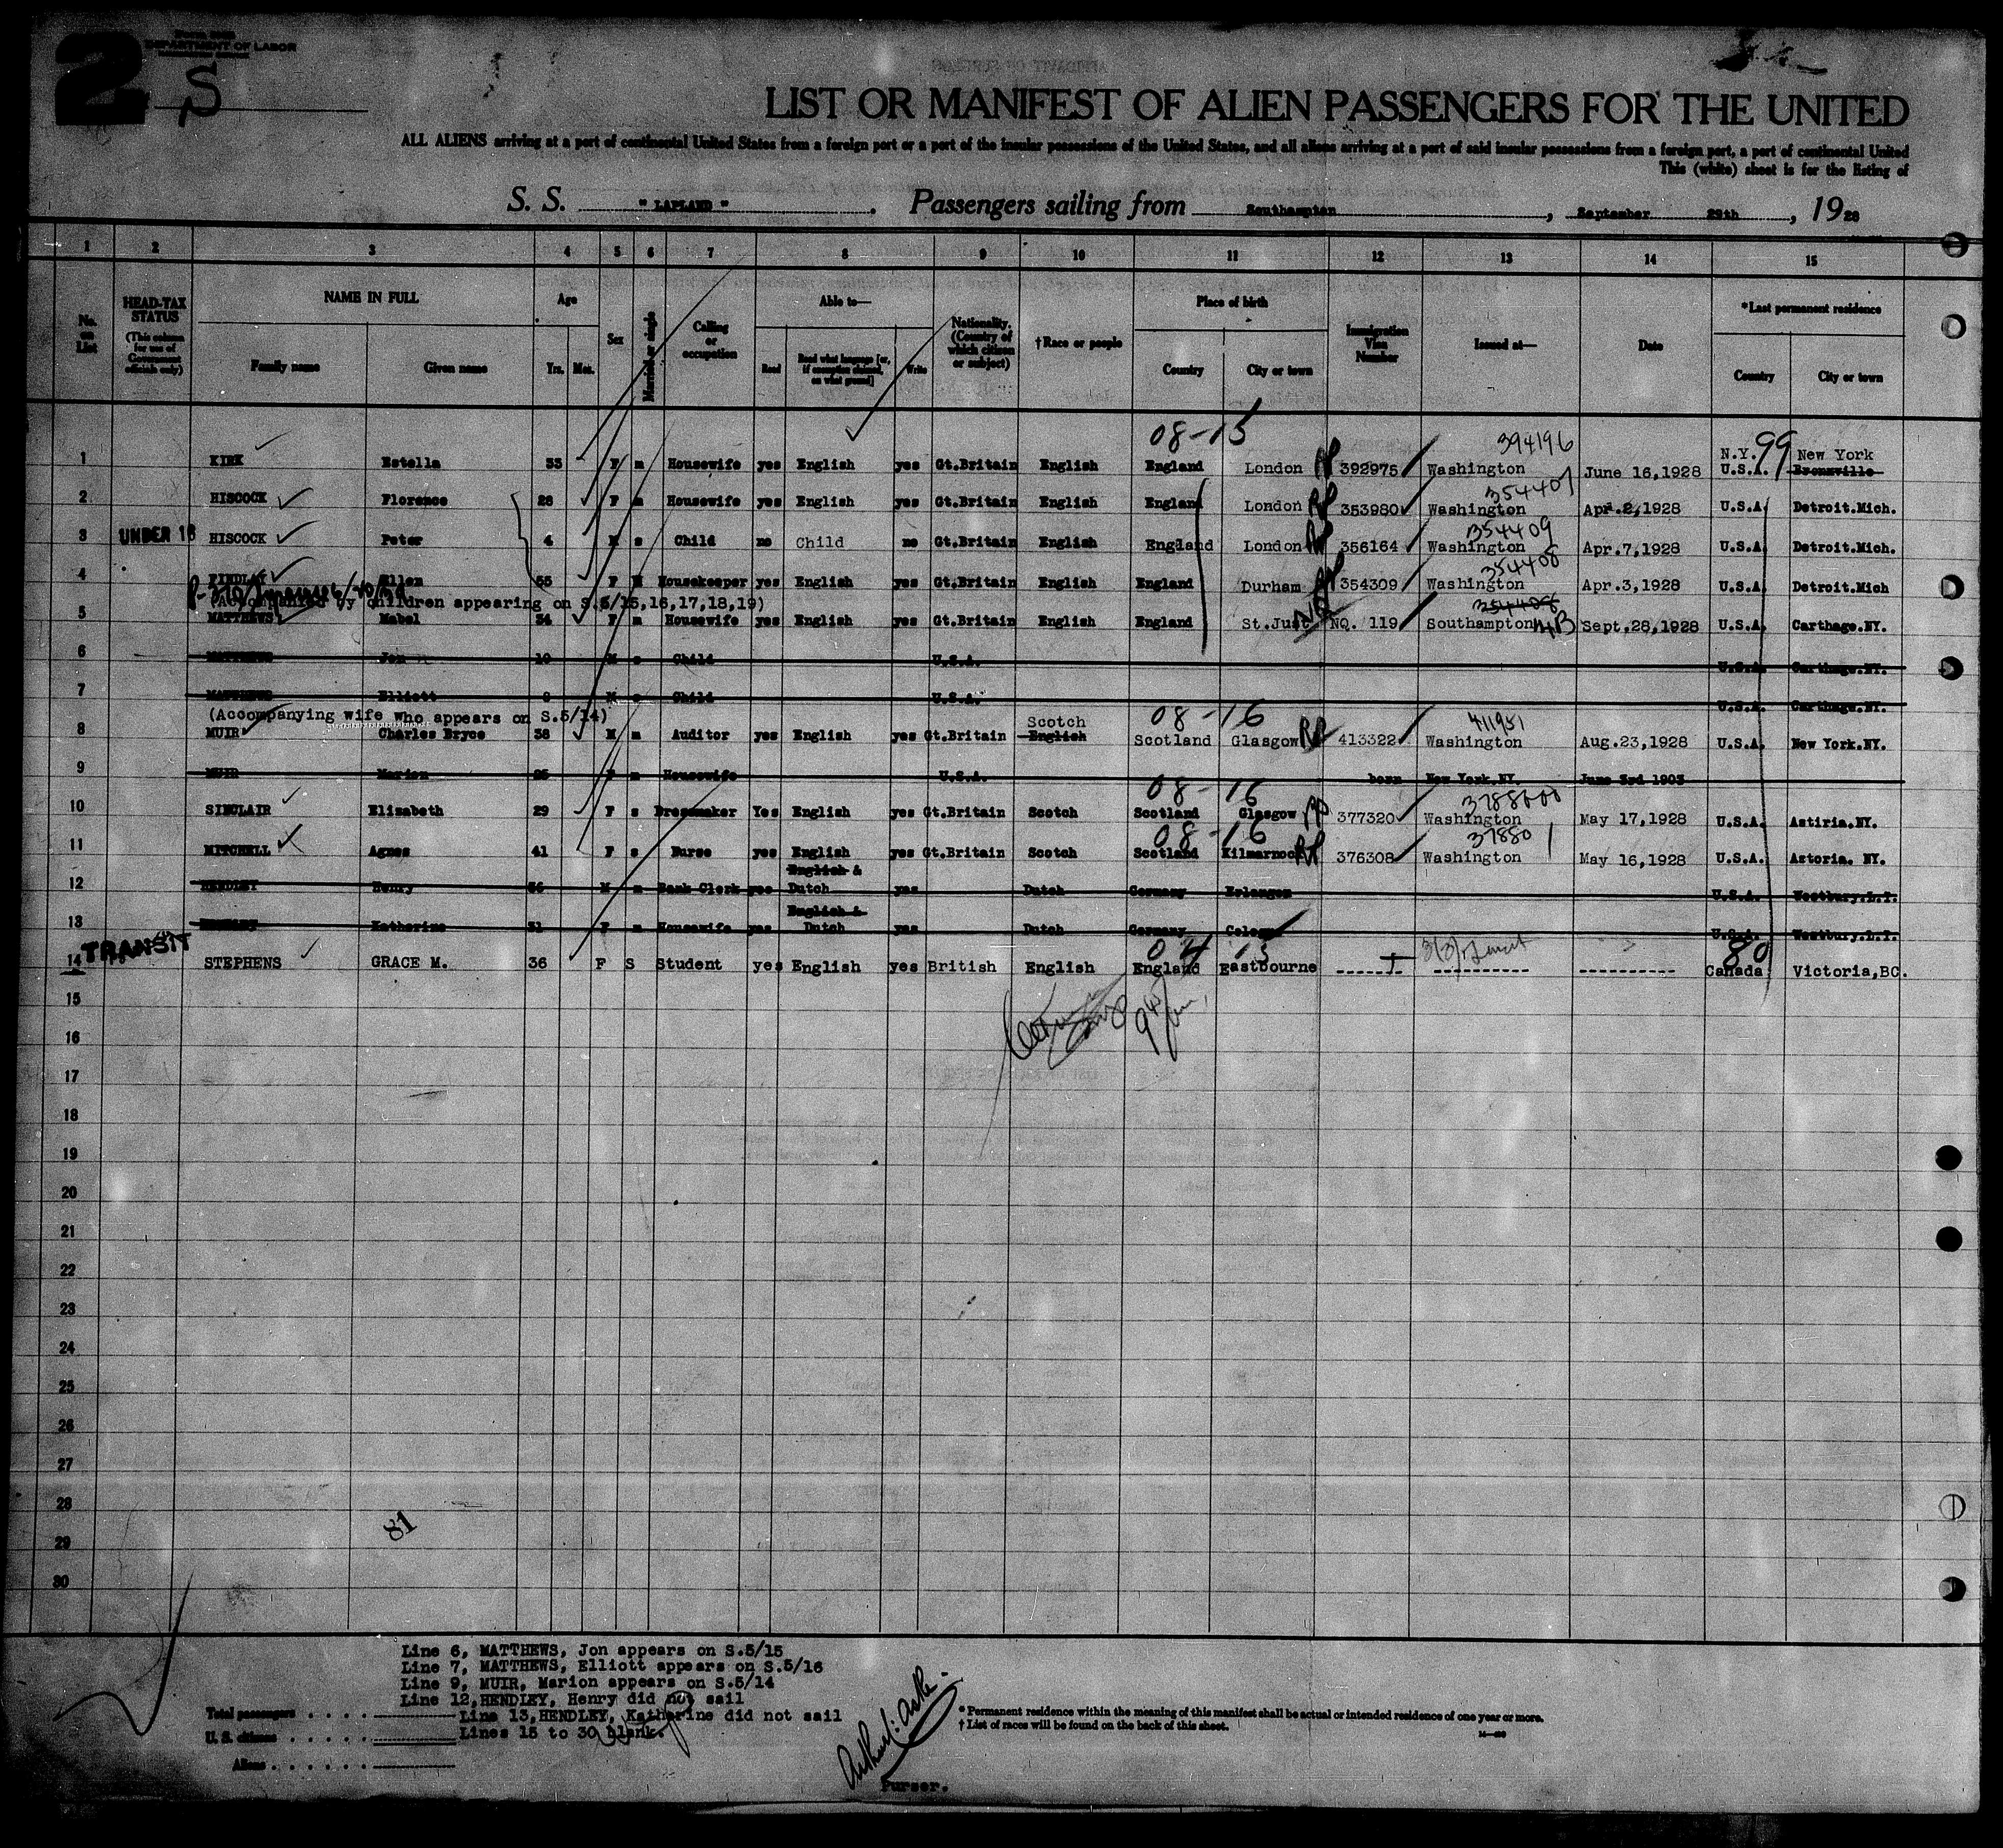 2
DEPARTMENT OF LABOR
S
LIST OR MANIFEST OF ALIEN PASSENGERS FOR THE UNITED
ALL ALIENS arriving at a port of continental United States from a foreign port or a port of the insular possessions of the United States, and all aliens arriving at a port of said insular possessions from a foreign port, a port of continental United
This (white) sheet is for the listing of
S. S. " LAPLAND " . Passengers sailing from Southampton , September 29th , 1928
1 2 3 4 5 6 7 8 9 10 11 12 13 14 15
No. on List
HEAD-TAX STATUS (This column for use of Government officials only)
NAME IN FULL Family name Given name
Age Yrs. Mos.
Sex
Married or single
Calling or occupation
Able to— Read Read what language [or, if exemption claimed, on what ground] Write
Nationality. (Country of which citizen or subject)
†Race or people
Place of birth Country City or town
Immigration Visa Number
Issued at—
Date
*Last permanent residence Country City or town
08-15 394196 N.Y. 99 New York
1 KIRK Estella 53 F m Housewife yes English yes Gt.Britain English England London 392975 Washington June 16,1928 U.S.A. Bronxville
354407
2 HISCOCK Florence 28 F m Housewife yes English yes Gt.Britain English England London 353980 Washington Apr.2,1928 U.S.A. Detroit.Mich.
354409
3 UNDER 16 HISCOCK Peter 4 M s Child no Child no Gt.Britain English England London 356164 Washington Apr.7,1928 U.S.A. Detroit.Mich.
354408
4 FINDLAY Ellen 55 F M Housekeeper yes English yes Gt.Britain English England Durham 354309 Washington Apr.3,1928 U.S.A. Detroit.Mich
(Accompanied by children appearing on S.5/15,16,17,18,19)
354408
5 MATTHEWS Mabel 34 F m Housewife yes English yes Gt.Britain English England St.Just NQ. 119 Southampton Sept.28,1928 U.S.A. Carthage.NY.
6 MATTHEWS Jon 10 M s Child U.S.A. U.S.A. Carthage.NY.
7 MATTHEWS Elliott M s Child U.S.A. U.S.A. Carthage.NY.
(Accompanying wife who appears on S.5/14) Scotch 08-16 411951
8 MUIR Charles Bryce 38 M m Auditor yes English yes Gt.Britain English Scotland Glasgow 413322 Washington Aug.23,1928 U.S.A. New York.NY.
9 MUIR Marion 25 F m Housewife U.S.A. born New York.NY June 3rd 1903
08-16
10 SINCLAIR Elizabeth 29 F s Dressmaker Yes English yes Gt.Britain Scotch Scotland Glasgow 377320 Washington May 17,1928 U.S.A. Astiria.NY.
08-16
11 MITCHELL Agnes 41 F s Nurse yes English yes Gt.Britain Scotch Scotland Kilmarnock 376308 Washington May 16,1928 U.S.A. Astoria. NY.
English &
12 HENDLEY Henry 36 M m Bank Clerk yes Dutch yes Dutch Germany Erlangen U.S.A. Westbury.L.I.
English &
13 HENDLEY Katherine 31 F m Housewife yes Dutch yes Dutch Germany Cologne U.S.A. Westbury.L.I.
TRANSIT 80
14 STEPHENS GRACE M. 36 F S Student yes English yes British English England Eastbourne Canada Victoria,BC.
15
16
17
18
19
20
21
22
23
24
25
26
27
28
81
29
30
Line 6, MATTHEWS, Jon appears on S.5/15
Line 7, MATTHEWS, Elliott appears on S.5/16
Line 9, MUIR, Marion appears on S.5/14
Line 12,HENDLEY, Henry did not sail
Total passengers Line 13,HENDLEY, Katherine did not sail
U. S. citizens Lines 15 to 30 blank.
Aliens
* Permanent residence within the meaning of this manifest shall be actual or intended residence of one year or more.
† List of races will be found on the back of this sheet.
Purser.